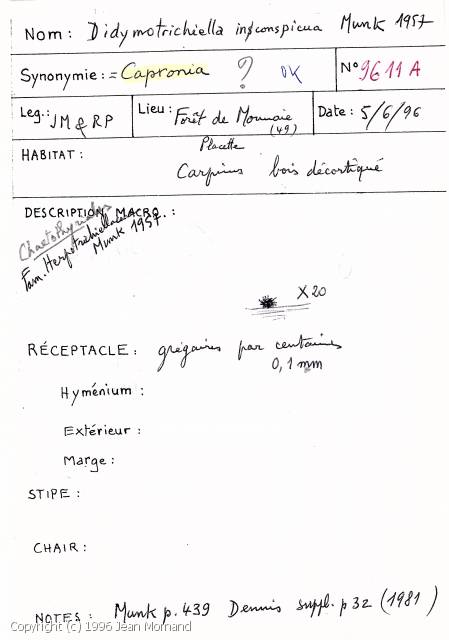 Nom: Didymotrichiella inconspicua Munk 1957
Synonymie: = Capronia ? OK
N° 9611 A
Leg.: JM & RP
Lieu: Forêt de Monnaie
(49)
Date: 5/6/96
HABITAT:
Placette
Carpinus bois décortiqué
DESCRIPTION MACRO.:
Fam. Herpotrichiellaceae
Munk 1957
X20
RÉCEPTACLE: grégaires par centaines
0,1 mm
Hyménium:
Extérieur:
Marge:
STIPE:
CHAIR:
NOTES: Munk p. 439 Dennis suppl. p 32 (1981)
Copyright (c) 1996 Jean Mornand